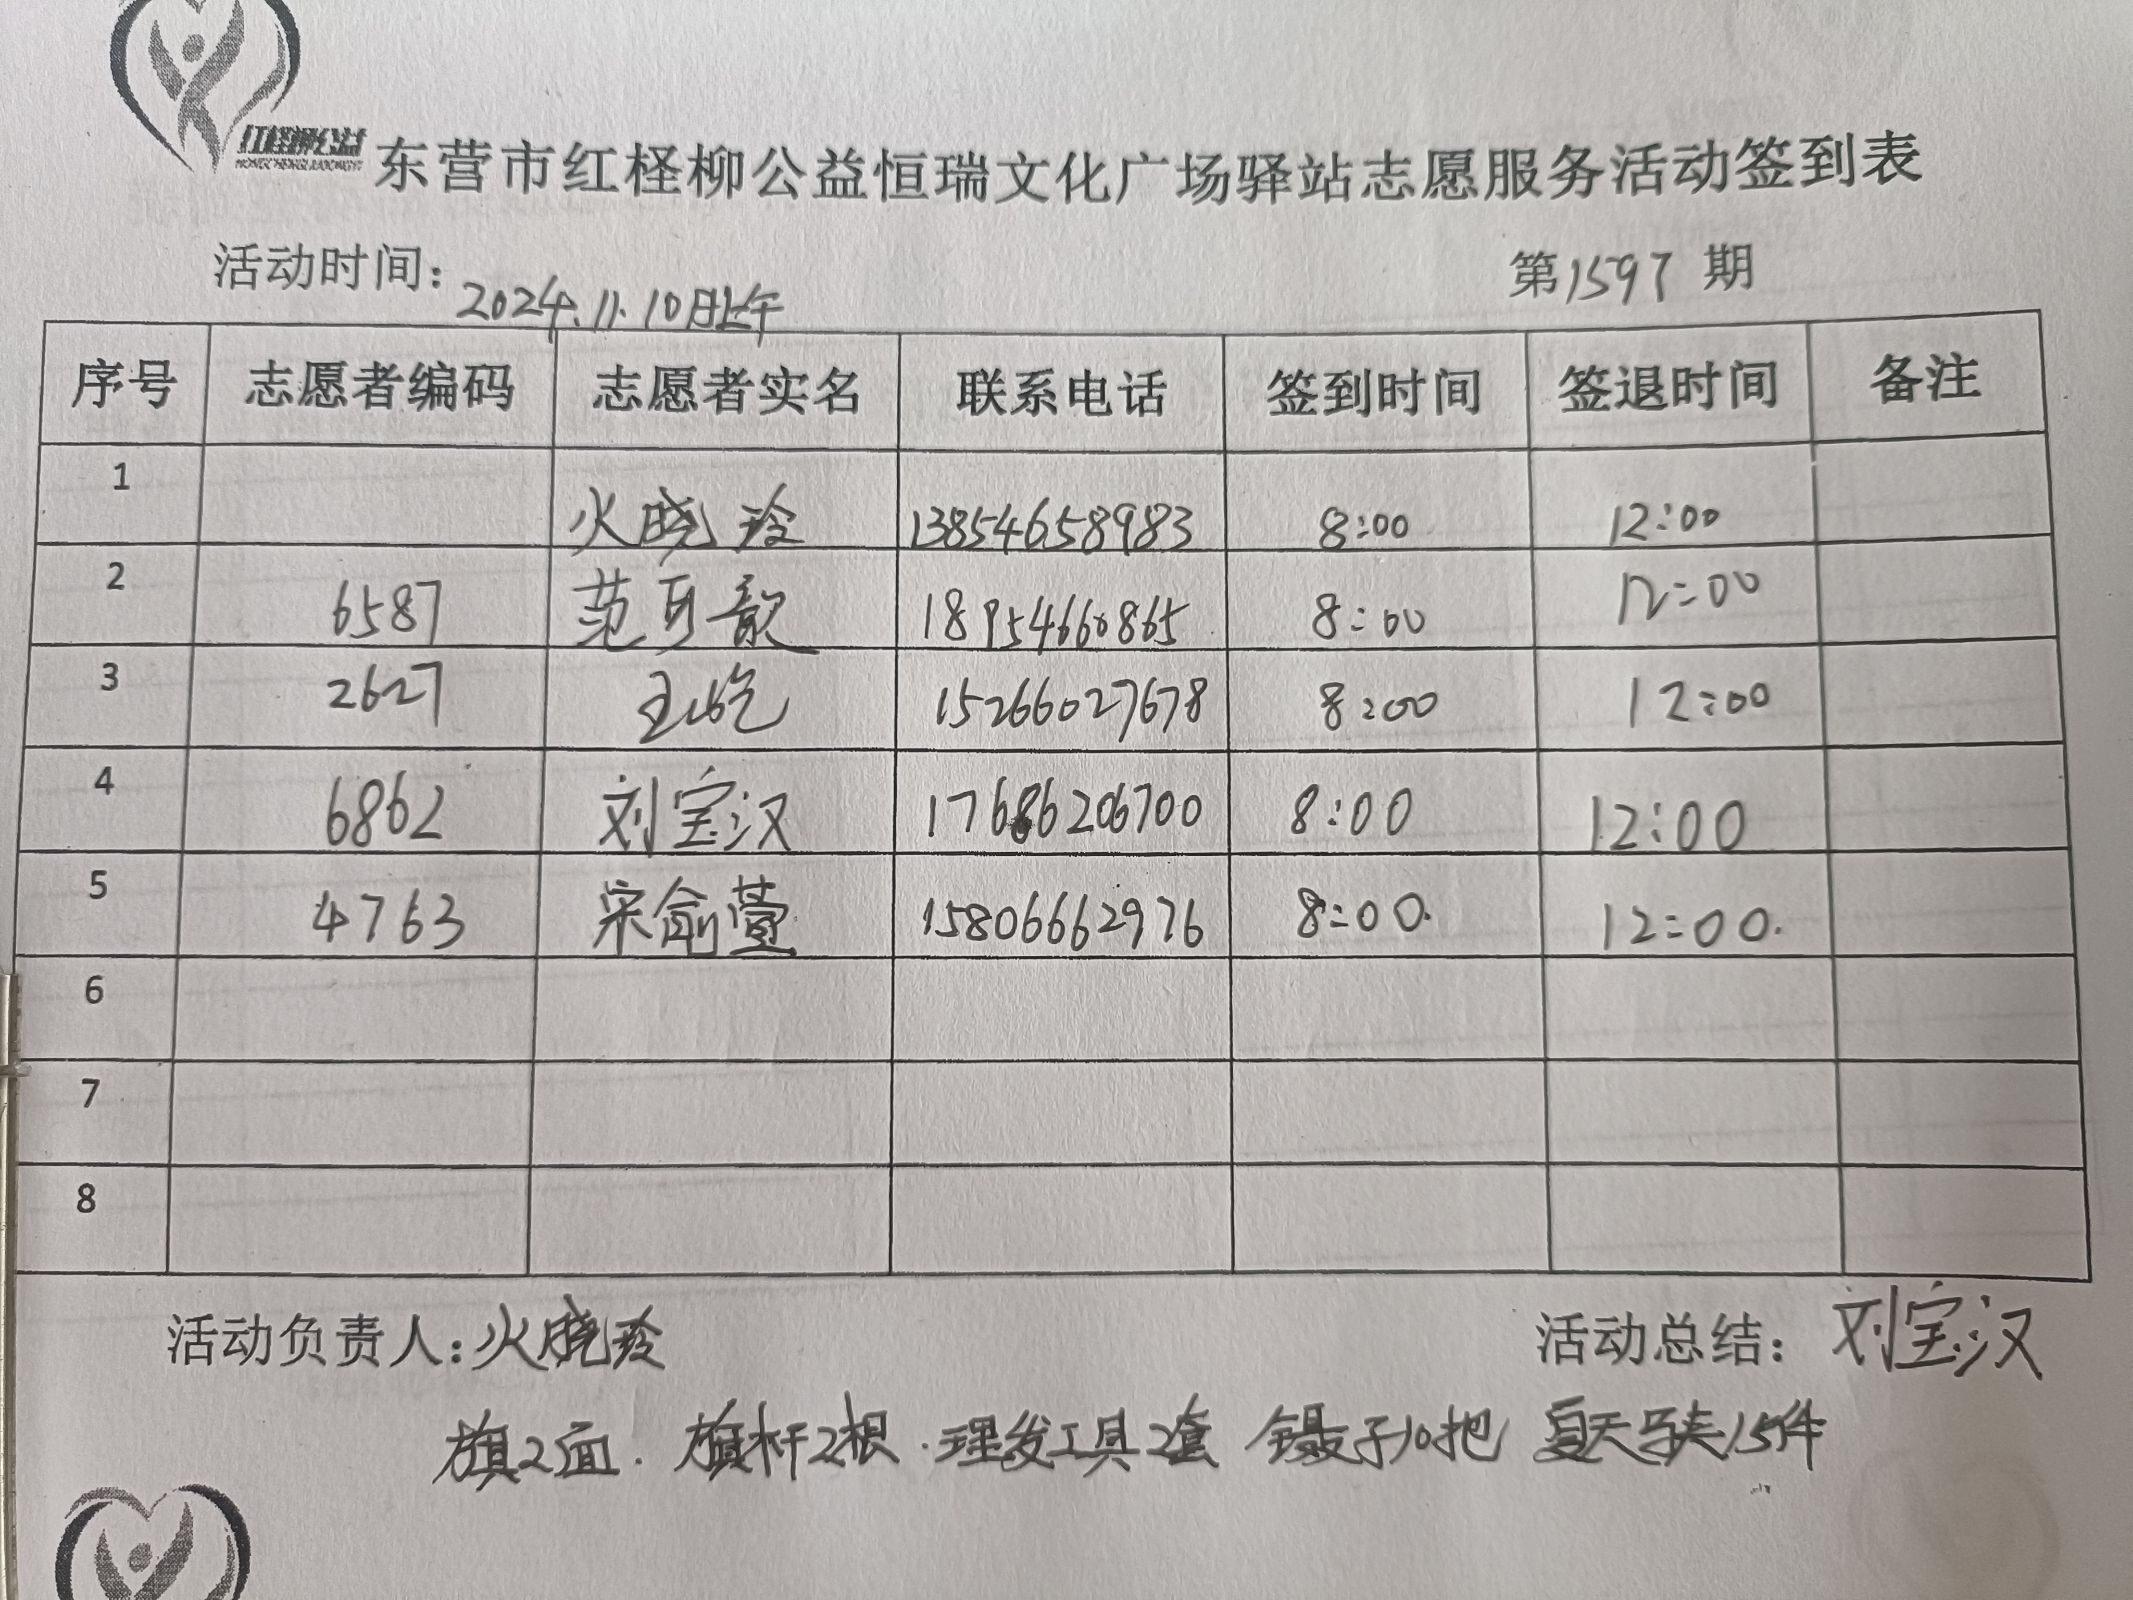 红柽柳公益
东营市红柽柳公益恒瑞文化广场驿站志愿服务活动签到表
活动时间：2024.11.10日上午 第1597期
序号 志愿者编码 志愿者实名 联系电话 签到时间 签退时间 备注
1 火晓玲 13854658983 8:00 12:00
2 6587 范可歆 18954660865 8:00 12:00
3 2627 15266027678 8:00 12:00
4 6862 刘宝汉 17686206700 8:00 12:00
5 4763 宋俞萱 15806662976 8:00. 12:00.
6
7
8
活动负责人：火晓玲 活动总结：刘宝汉
旗2面. 旗杆2根. 理发工具2套 镊子10把 夏天马夹15件